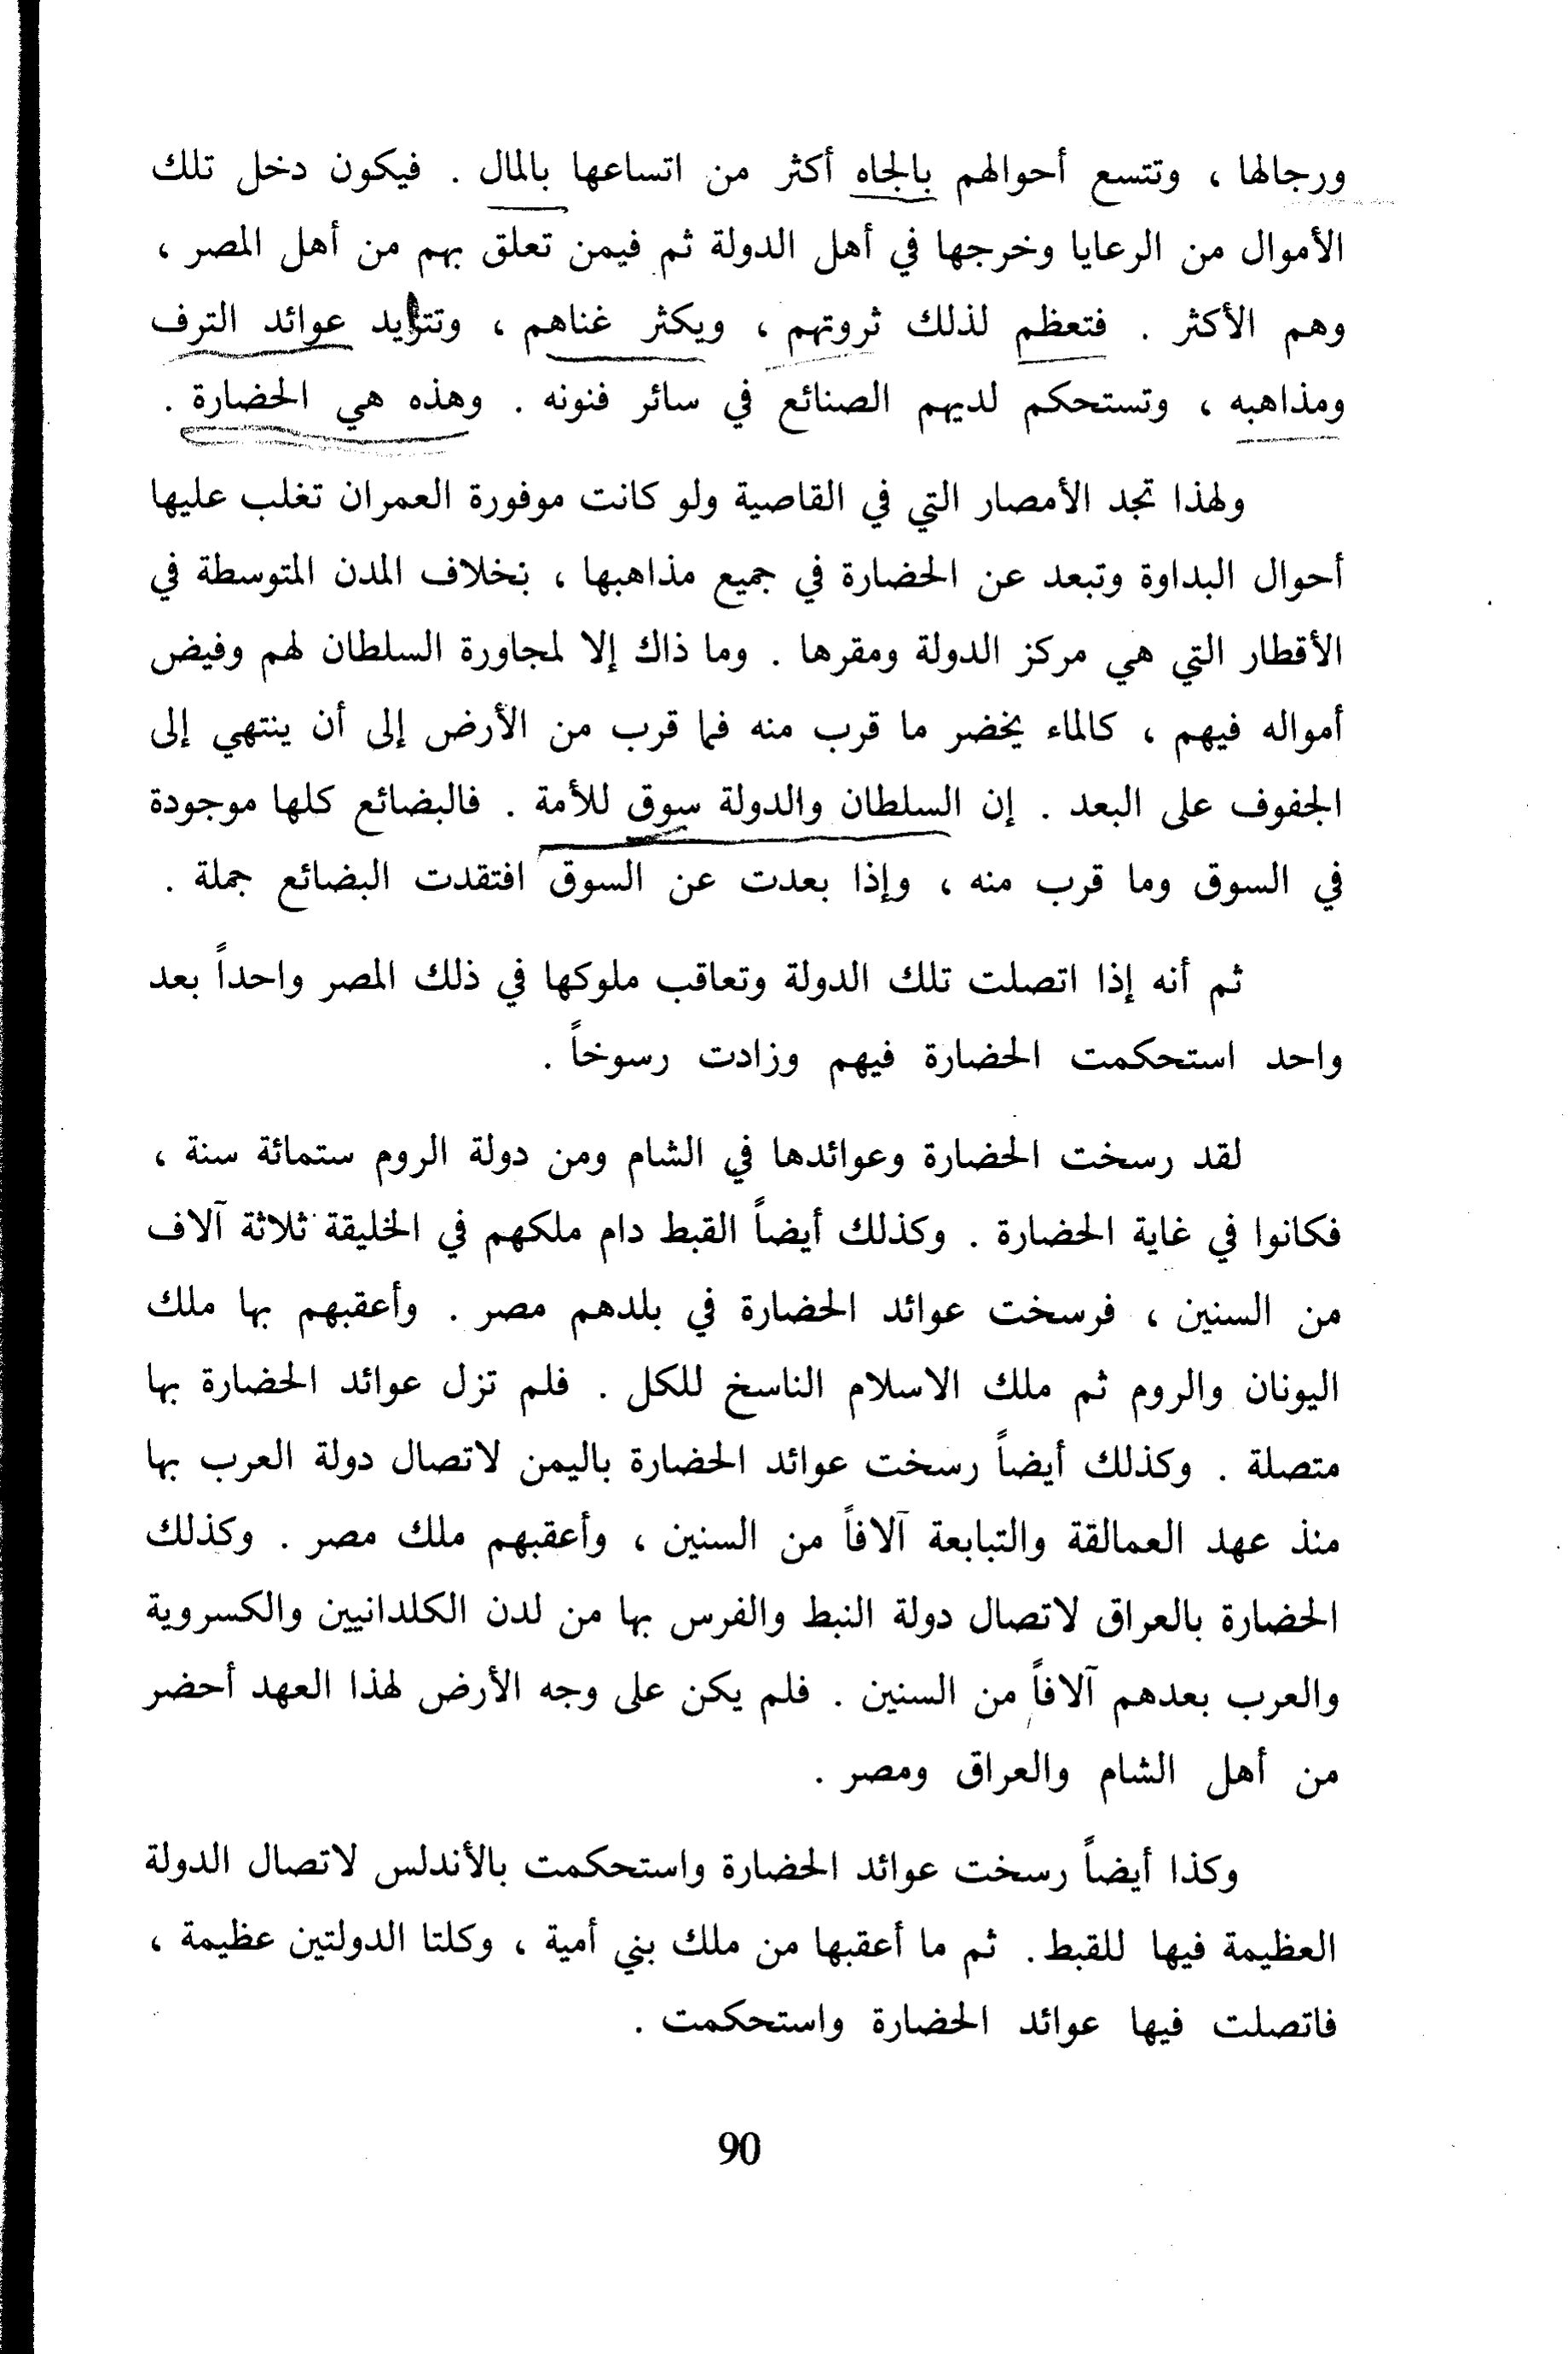 ورجالها ، وتتسع أحوالهم بالجاه أكثر من اتساعها بالمال . فيكون دخل تلك
الأموال من الرعايا وخرجها في أهل الدولة ثم فيمن تعلق بهم من أهل المصر ،
وهم الأكثر . فتعظم لذلك ثروتهم ، ويكثر غناهم ، وتتزايد عوائد الترف
ومذاهبه ، وتستحكم لديهم الصنائع في سائر فنونه . وهذه هي الحضارة .
ولهذا تجد الأمصار التي في القاصية ولو كانت موفورة العمران تغلب عليها
أحوال البداوة وتبعد عن الحضارة في جميع مذاهبها ، بخلاف المدن المتوسطة في
الأقطار التي هي مركز الدولة ومقرها . وما ذاك إلا لمجاورة السلطان لهم وفيض
أمواله فيهم ، كالماء يخضر ما قرب منه فما قرب من الأرض إلى أن ينتهي إلى
الجفوف على البعد . إن السلطان والدولة سوق للأمة . فالبضائع كلها موجودة
في السوق وما قرب منه ، وإذا بعدت عن السوق افتقدت البضائع جملة .
ثم أنه إذا اتصلت تلك الدولة وتعاقب ملوكها في ذلك المصر واحداً بعد
واحد استحكمت الحضارة فيهم وزادت رسوخاً .
لقد رسخت الحضارة وعوائدها في الشام ومن دولة الروم ستمائة سنة ،
فكانوا في غاية الحضارة . وكذلك أيضاً القبط دام ملكهم في الخليقة ثلاثة آلاف
من السنين ، فرسخت عوائد الحضارة في بلدهم مصر . وأعقبهم بها ملك
اليونان والروم ثم ملك الاسلام الناسخ للكل . فلم تزل عوائد الحضارة بها
متصلة . وكذلك أيضاً رسخت عوائد الحضارة باليمن لاتصال دولة العرب بها
منذ عهد العمالقة والتبابعة آلافاً من السنين ، وأعقبهم ملك مصر . وكذلك
الحضارة بالعراق لاتصال دولة النبط والفرس بها من لدن الكلدانيين والكسروية
والعرب بعدهم آلافاً من السنين . فلم يكن على وجه الأرض لهذا العهد أحضر
من أهل الشام والعراق ومصر .
وكذا أيضاً رسخت عوائد الحضارة واستحكمت بالأندلس لاتصال الدولة
العظيمة فيها للقبط . ثم ما أعقبها من ملك بني أمية ، وكلتا الدولتين عظيمة ،
فاتصلت فيها عوائد الحضارة واستحكمت .
90